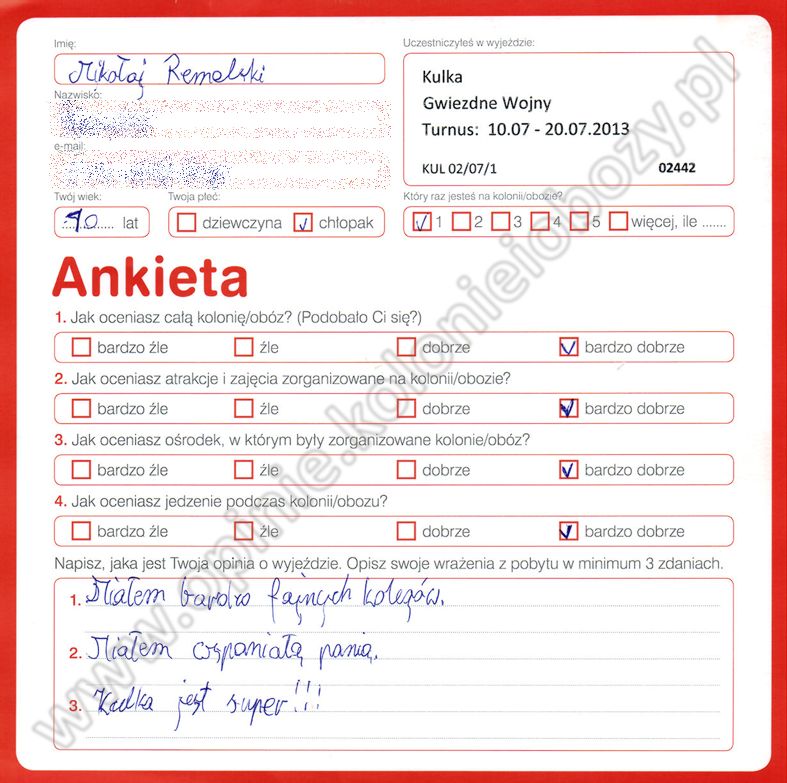 Imię:
Mikołaj Remelski
Nazwisko:
e-mail:
Twój wiek:
10 lat
Twoja płeć:
dziewczyna chłopak
Uczestniczyłeś w wyjeździe:
Kulka
Gwiezdne Wojny
Turnus: 10.07 - 20.07.2013
KUL 02/07/1 02442
Który raz jesteś na kolonii/obozie?
1 2 3 4 5 więcej, ile .......
Ankieta
1. Jak oceniasz całą kolonię/obóz? (Podobało Ci się?)
bardzo źle źle dobrze bardzo dobrze
2. Jak oceniasz atrakcje i zajęcia zorganizowane na kolonii/obozie?
bardzo źle źle dobrze bardzo dobrze
3. Jak oceniasz ośrodek, w którym były zorganizowane kolonie/obóz?
bardzo źle źle dobrze bardzo dobrze
4. Jak oceniasz jedzenie podczas kolonii/obozu?
bardzo źle źle dobrze bardzo dobrze
Napisz, jaka jest Twoja opinia o wyjeździe. Opisz swoje wrażenia z pobytu w minimum 3 zdaniach.
1. Miałem bardzo fajnych kolegów.
2. Miałem wspaniałą panią.
3. Kulka jest super!!!
www.opinie.kolonieiobozy.pl